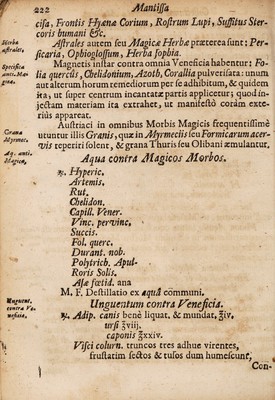 222 Mantissa
cisa, Frontis Hyænæ Corium, Rostrum Lupi, Suffitus Ster-
coris humani &c.
Herba
astrales.
Astrales autem seu Magicæ Herbæ præterea sunt: Per-
sicaria, Ophioglossum, Herba sophia.
Specifica
ante-Ma-
gica.
Magnetis instar contra omnia Veneficia habentur: Fo-
lia quercûs, Chelidonium, Azoth, Corallia pulverisata: unum
aut alterum horum remediorum per se adhibitum, & quidem
ita, ut super centrum incantatæ partis applicetur; quod in-
jectam materiam ita extrahet, ut manifestò coràm exte-
riùs appareat.
Grana
Myrmec.
Austriaci in omnibus Morbis Magicis frequentissimè
utuntur illis Granis, quæ in Myrmeciis seu Formicarum acer-
vis reperiri solent, & grana Thuris seu Olibani æmulantur.
Aq. anti-
Magica,
Aqua contra Magicos Morbos.
℞. Hyperic.
Artemis.
Rut.
Chelidon.
Capill. Vener.
Vinc. pervinc.
Succis.
Fol. querc.
Durant. nob.
Polytrich. Apul-
Roris Solis.
Asæ fœtid. ana
M. F. Destillatio ex aquâ communi.
Unguent.
contra Ve-
neficia.
Unguentum contra Veneficia.
℞. Adip. canis benè liquat. & mundat, ℥iv.
ursi ℥viij.
caponis ℥xxiv.
Visci colurn. truncos tres adhuc virentes,
frustatim sectos & tusos dum humescunt,
Con-